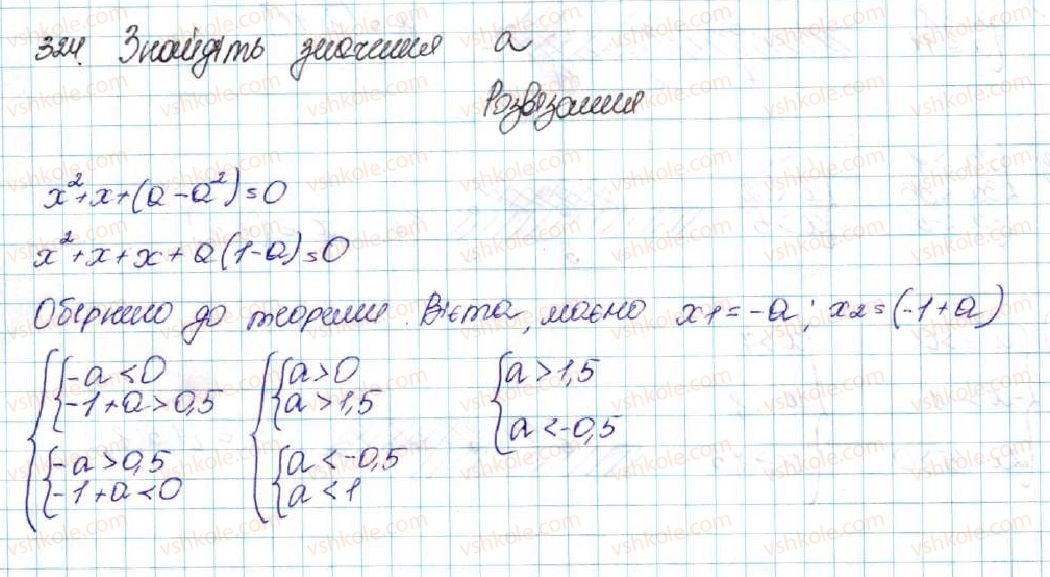 324. Знайдіть значення a
Розв'язання
x²+x+(a-a²)=0
x²+x+x+a(1-a)=0
Обернено до теореми Вієта, маємо x1=-a; x2=(-1+a)
{ {-a<0 { {a>0 {a>1,5
-1+a>0,5 a>1,5 a<-0,5
{-a>0,5 {a<-0,5
-1+a<0 a<1
vshkole.com